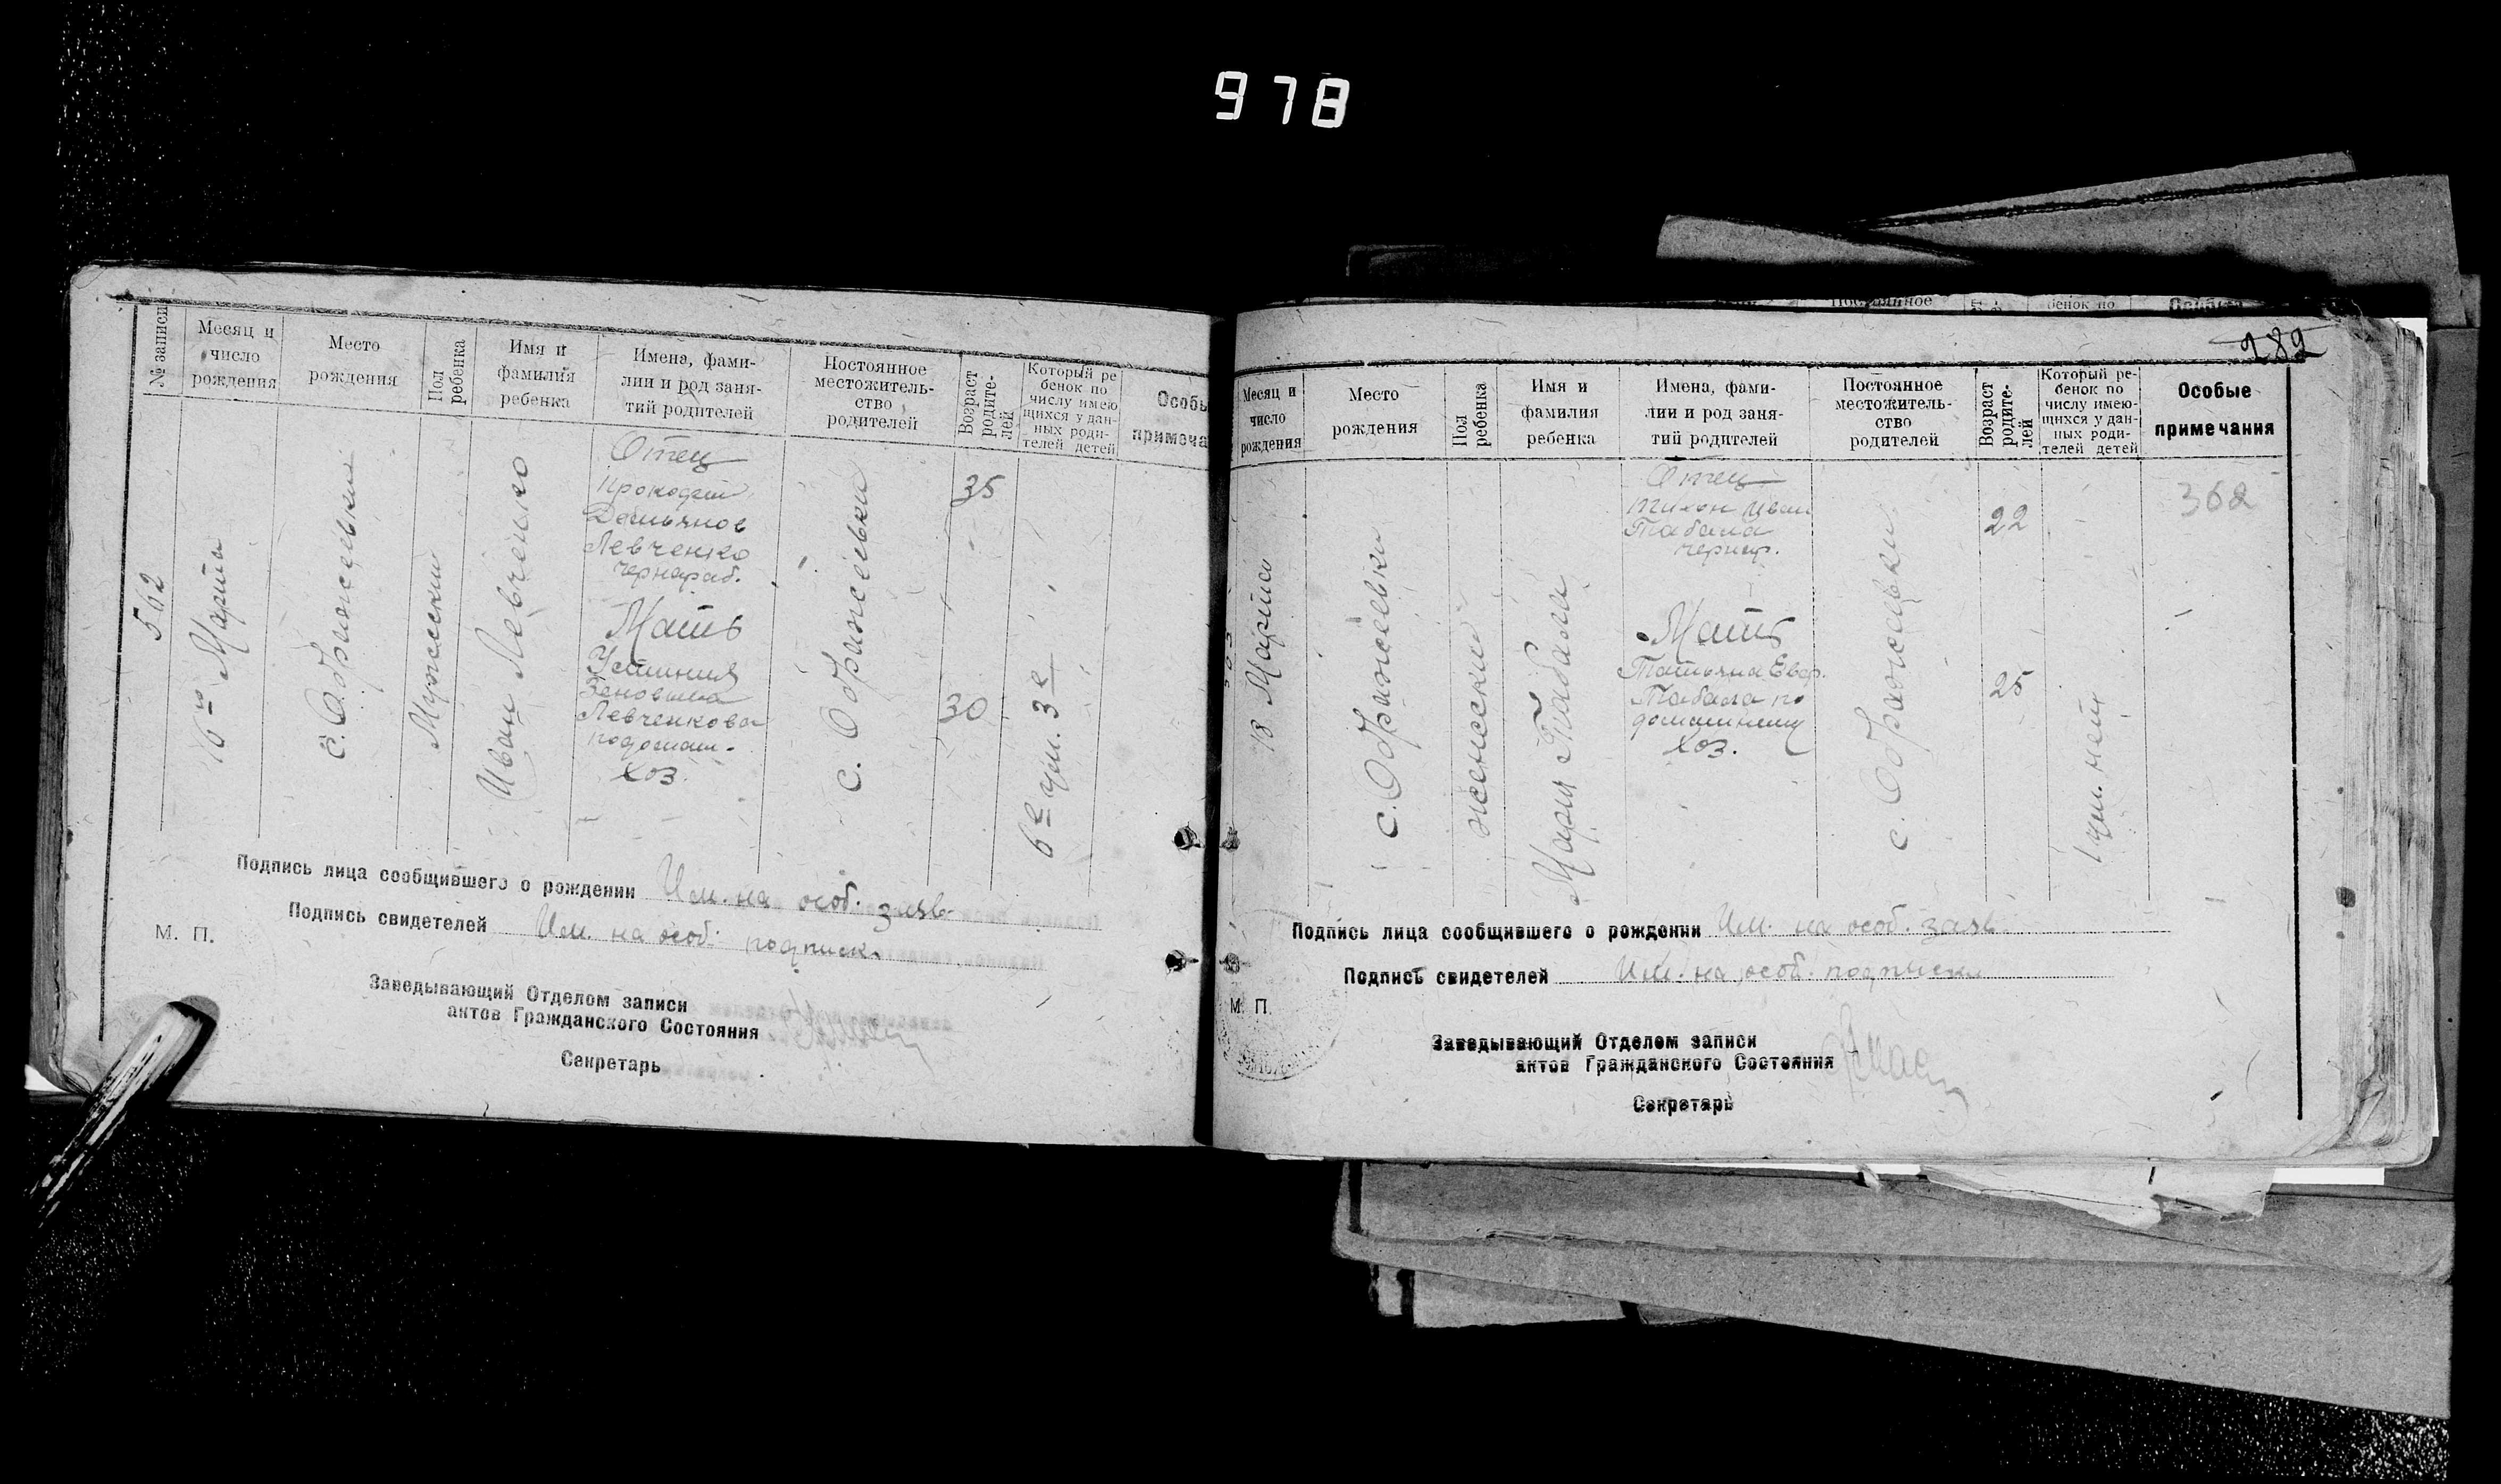 978
№ записи
Месяц и
число
рождения
Место
рождения
Пол
ребенка
Имя и
фамилия
ребенка
Имена, фами-
лии и род заня-
тий родителей
Постоянное
местожитель-
ство
родителей
Возраст
родите-
лей
Который ре
бенок по
числу имею
щихся у дан-
ных роди-
телей детей
Особы
примеча
562
16 Марта
Мужеский
Иван Левченко
Отец
Прокофий
Демьянов
Левченко
чернораб.
Мать
Устиния
Левченкова
по домаш-
хоз.
35
30
6е ум. 3е
Подпись лица сообщившего о рождении Им. на особ. заяв.
Подпись свидетелей Им. на особ. подписк.
М. П.
Заведывающий Отделом записи
актов Гражданского Состояния
Секретарь
Постоянное
бенок по
282
Месяц и
число
рождения
Место
рождения
Пол
ребенка
Имя и
фамилия
ребенка
Имена, фами-
лии и род заня-
тий родителей
Постоянное
местожитель-
ство
родителей
Возраст
родите-
лей
Который ре-
бенок по
числу имею-
щихся у дан-
ных роди-
телей детей
Особые
примечания
18 Марта
женский
Мария Табала
Отец
Тихон Иван
Табала
чернор.
Мать
Татьяна Евф.
Табала по
домашнему
хоз.
22
25
1 ум. нет
362
Подпись лица сообщившего о рождении Им. на особ. заяв.
Подпись свидетелей Им. на особ. подписк.
М. П.
Заведывающий Отделом записи
актов Гражданского Состояния
Секретарь